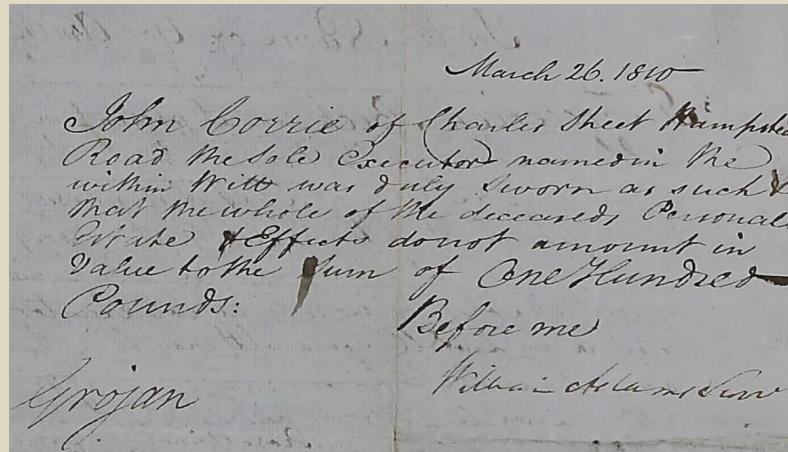 March 26. 1810
John Corrie of Charles Street Hampste
Road the Sole Executor named in the
within Will was duly Sworn as such &
that the whole of the deceaseds Personal
Estate & Effects do not amount in
Value to the Sum of One Hundred
Pounds:
Before me
Grojan
William Adams